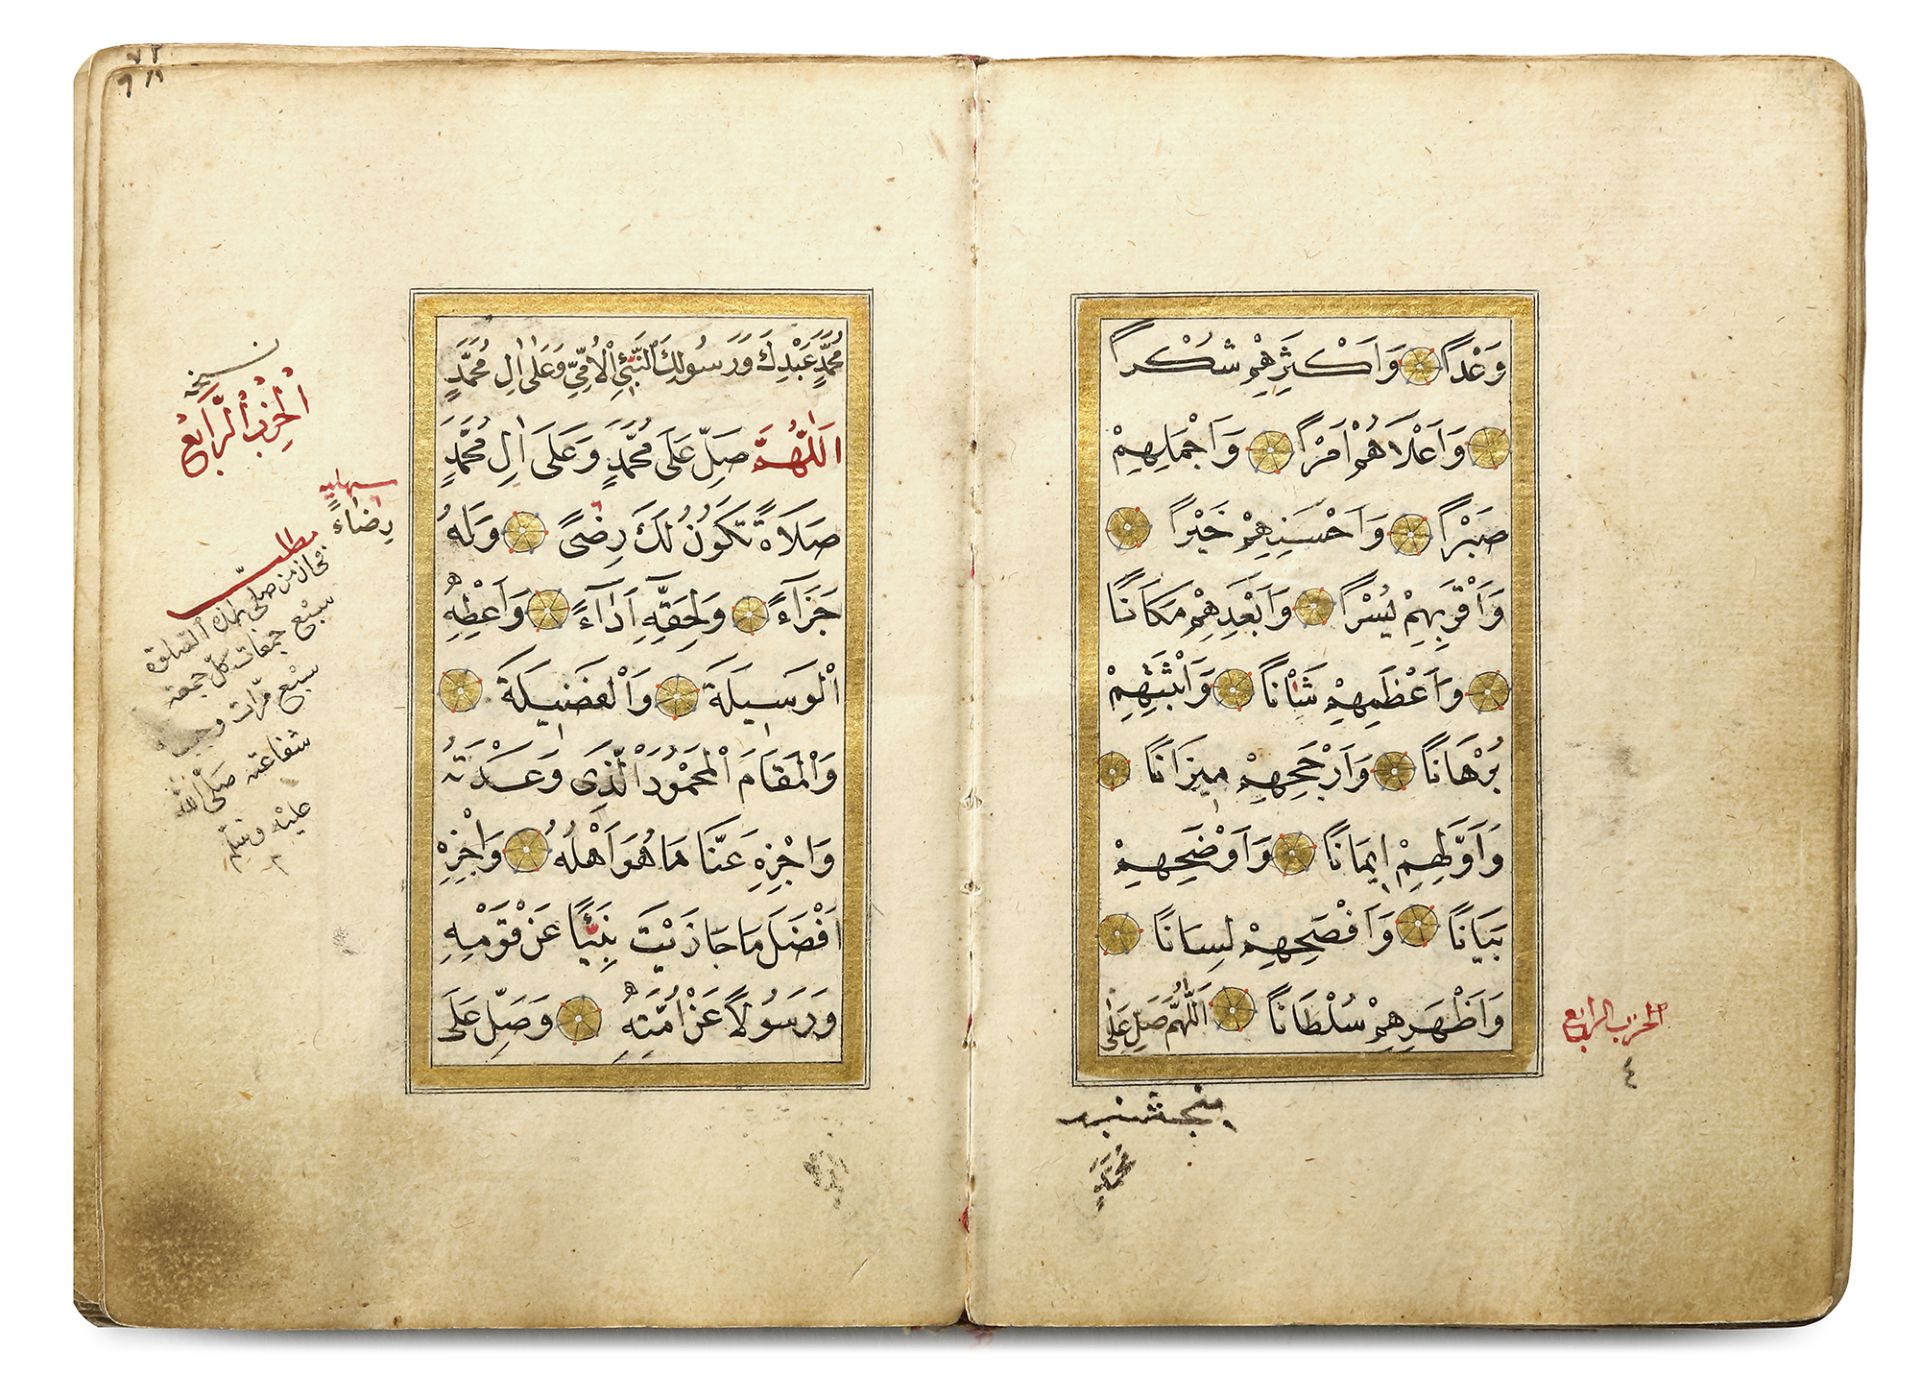 وَعْدًا وَاَكْثَرِهِمْ شُكْرًا
وَاَعْلَاهُمْ اَمْرًا وَاَجْمَلِهِمْ
صَبْرًا وَاَحْسَنِهِمْ خَيْرًا
وَاَقْرَبِهِمْ يُسْرًا وَاَبْعَدِهِمْ مَكَانًا
وَاَعْظَمِهِمْ شَانًا وَاَثْبَتِهِمْ
بُرْهَانًا وَاَرْجَحِهِمْ مِيزَانًا
وَاَوَّلِهِمْ اِيمَانًا وَاَوْضَحِهِمْ
بَيَانًا وَاَفْصَحِهِمْ لِسَانًا
وَاَظْهَرِهِمْ سُلْطَانًا اَللّٰهُمَّ صَلِّ عَلٰى
الحزب الرابع
٤
پنجشنبه
مُحَمَّدٍ
مُحَمَّدٍ عَبْدِكَ وَرَسُولِكَ النَّبِيِّ الْاُمِّيِّ وَعَلٰى اٰلِ مُحَمَّدٍ
اَللّٰهُمَّ صَلِّ عَلَى مُحَمَّدٍ وَعَلَى اٰلِ مُحَمَّدٍ
صَلَاةً تَكُونُ لَكَ رِضًى وَلَهُ
جَزَاءً وَلِحَقِّهِ اَدَاءً وَاَعْطِهِ
الْوَسِيلَةَ وَالْفَضِيلَةَ
وَالْمَقَامَ الْمَحْمُودَ الَّذِى وَعَدْتَهُ
وَاجْزِهِ عَنَّا مَا هُوَ اَهْلُهُ وَاجْزِهِ
اَفْضَلَ مَا جَازَيْتَ نَبِيًّا عَنْ قَوْمِهِ
وَرَسُولًا عَنْ اُمَّتِهِ وَصَلِّ عَلَى
نسخه
اَلْحِزْبُ الرَّابِعُ
سهليه
رِضَاءً
مطلب
من صلى بهذه الصلوة
سبع جمعات كل جمعة
سبع مرات وجبت
شفاعته صلى الله
عليه وسلم